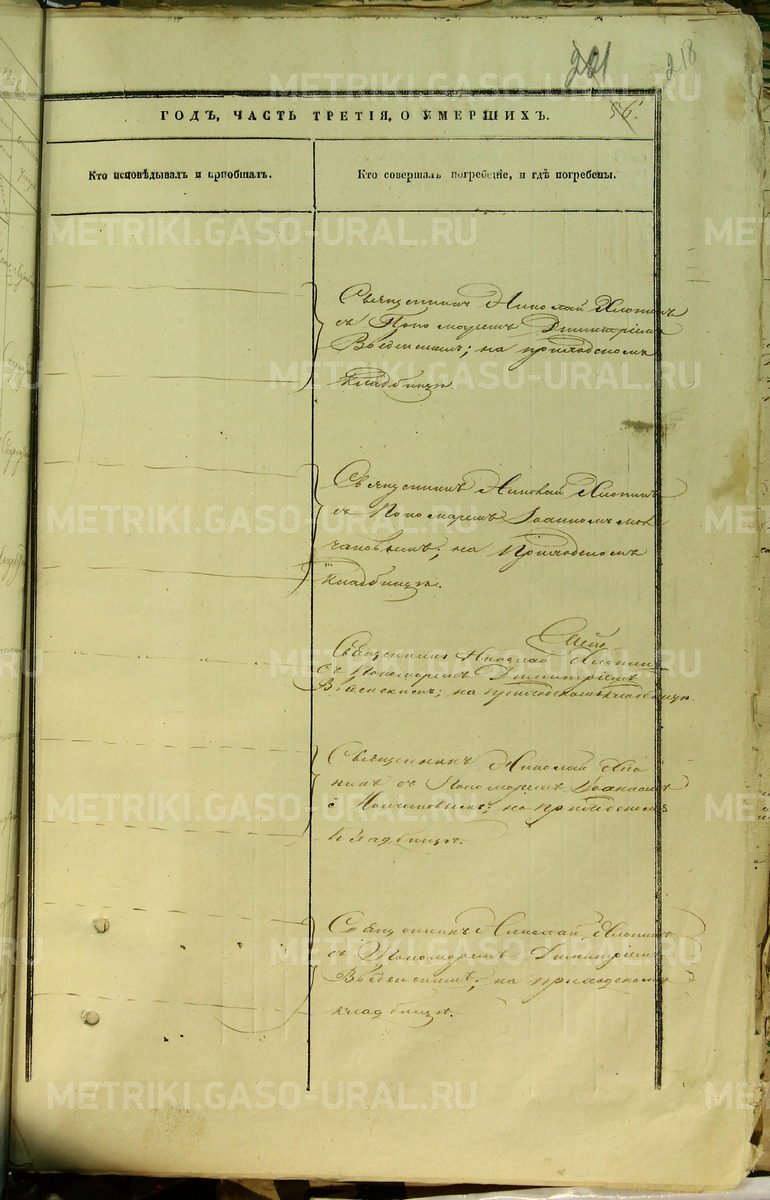 281
218
56.
ГОДЪ, ЧАСТЬ ТРЕТІЯ, О УМЕРШИХЪ.
Кто исповѣдывалъ и пріобщалъ.
Кто совершалъ погребеніе, и гдѣ погребены.
Священникъ Николай Хлопинъ
съ Пономаремъ Димитріемъ
Введенскимъ; на приходскомъ
кладбищѣ.
Священникъ Николай Хлопинъ
съ Пономаремъ Іоанномъ Мол
чановымъ; на Приходскомъ
кладбищѣ.
Священникъ Николай Хлопинъ
съ Пономаремъ Димитріемъ
Введенскимъ; на приходскомъ кладбищѣ.
Священникъ Николай Хло
пинъ съ Пономаремъ Іоанномъ
Молчановымъ; на приходскомъ
кладбищѣ.
Священникъ Николай Хлопинъ
съ Пономаремъ Димитріемъ
Введенскимъ; на приходскомъ
кладбищѣ.
METRIKI.GASO-URAL.RU